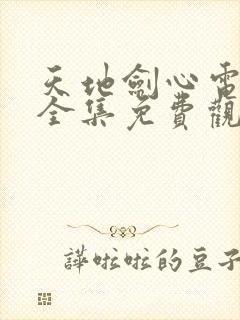 天地劍心電
全集免費觀
譁啦啦的豆子